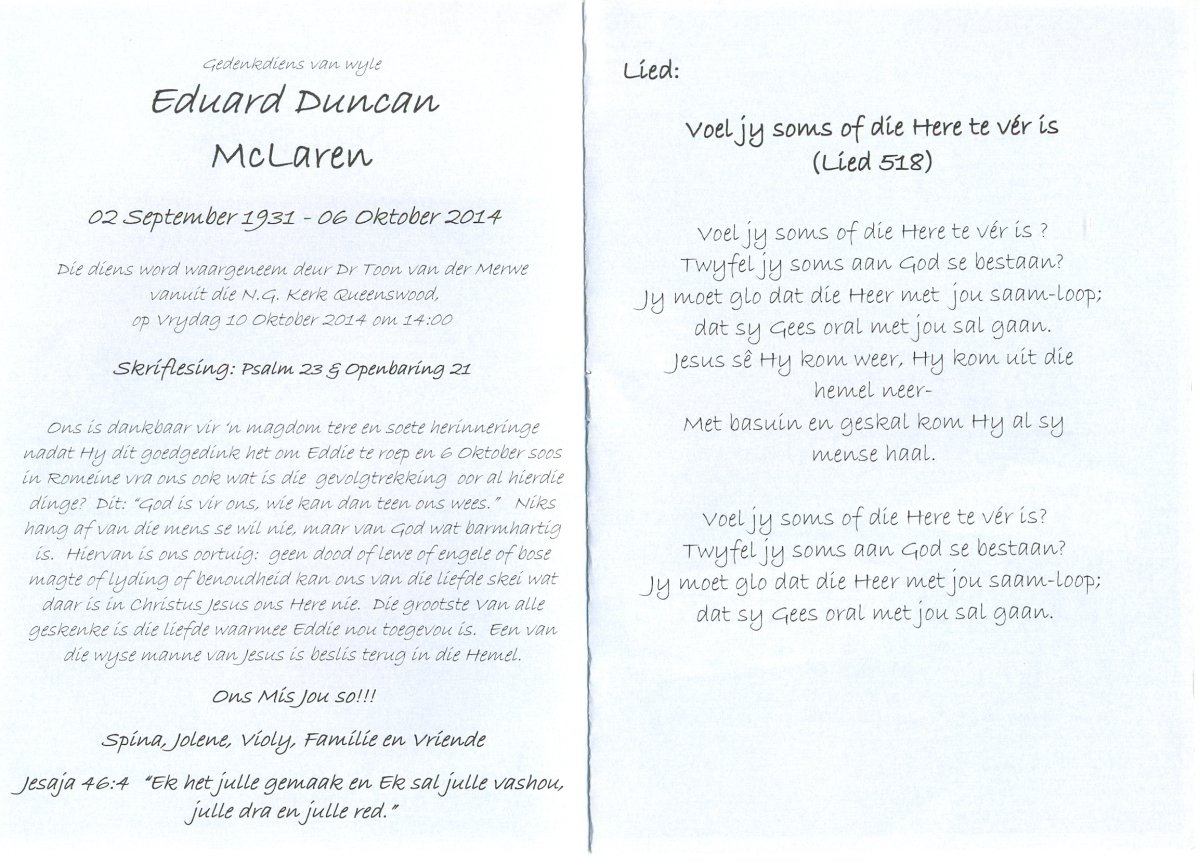 Gedenkdiens van wyle
Eduard Duncan
McLaren
02 September 1931 - 06 Oktober 2014
Die diens word waargeneem deur Dr Toon van der Merwe
vanuit die N.G. Kerk Queenswood,
op Vrydag 10 Oktober 2014 om 14:00
Skriflesing: Psalm 23 & Openbaring 21
Ons is dankbaar vir 'n magdom tere en soete herinneringe
nadat Hy dit goedgedink het om Eddie te roep en 6 Oktober soos
in Romeine vra ons ook wat is die gevolgtrekking oor al hierdie
dinge? Dit: "God is vir ons, wie kan dan teen ons wees." Niks
hang af van die mens se wil nie, maar van God wat barmhartig
is. Hiervan is ons oortuig: geen dood of lewe of engele of bose
magte of lyding of benoudheid kan ons van die liefde skei wat
daar is in Christus Jesus ons Here nie. Die grootste van alle
geskenke is die liefde waarmee Eddie nou toegevou is. Een van
die wyse manne van Jesus is beslis terug in die Hemel.
Ons Mis Jou so!!!
Spina, Jolene, Violy, Familie en Vriende
Jesaja 46:4 "Ek het julle gemaak en Ek sal julle vashou,
julle dra en julle red."
Lied:
Voel jy soms of die Here te vér is
(Lied 518)
Voel jy soms of die Here te vér is ?
Twyfel jy soms aan God se bestaan?
Jy moet glo dat die Heer met jou saam-loop;
dat sy Gees oral met jou sal gaan.
Jesus sê Hy kom weer, Hy kom uit die
hemel neer-
Met basuin en geskal kom Hy al sy
mense haal.
Voel jy soms of die Here te vér is?
Twyfel jy soms aan God se bestaan?
Jy moet glo dat die Heer met jou saam-loop;
dat sy Gees oral met jou sal gaan.